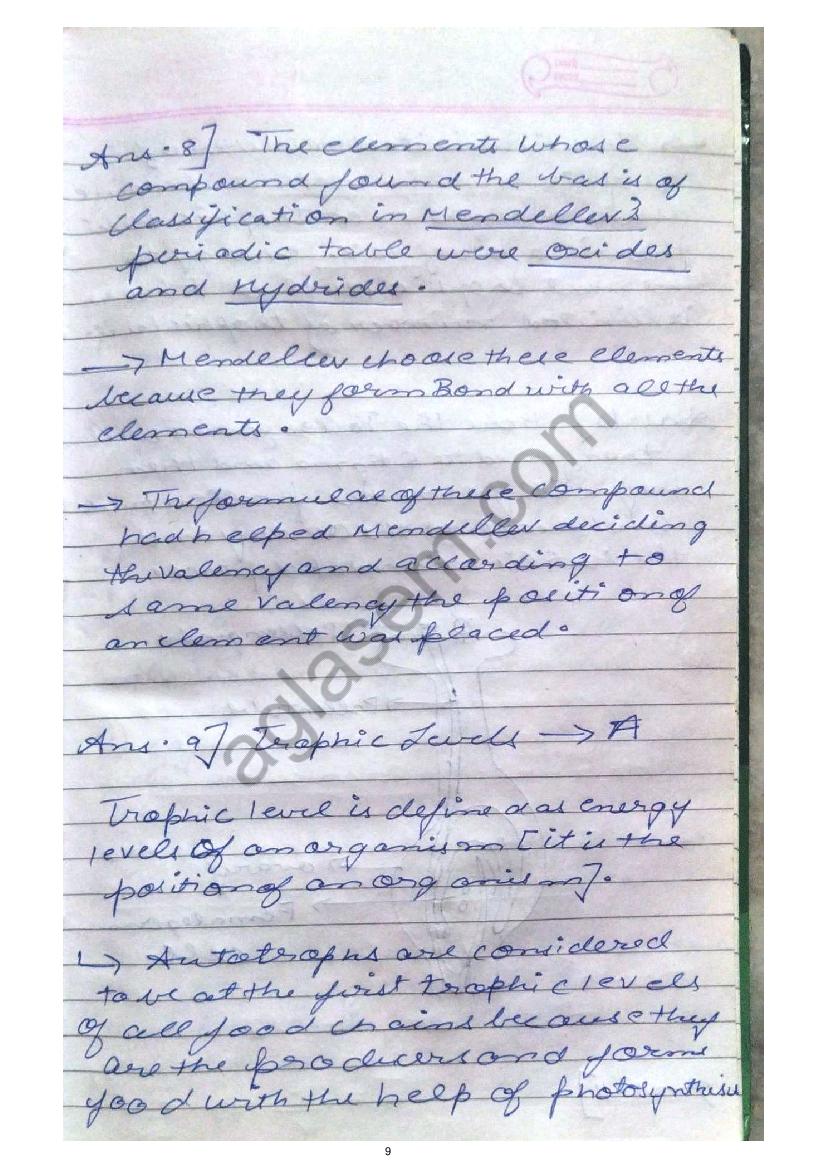 Ans. 8] The elements whose
compound found the basis of
classification in Mendellev's
periodic table were Oxides
and Hydrides.
→ Mendellev choose these elements
because they form Bond with all the
elements.
→ The formulae of these compound
had helped Mendellev deciding
the valency and according to
same valency the position of
an element was placed.
Ans. 9] Trophic Levels → A
Trophic level is defined as energy
levels of an organism [it is the
position of an organism].
↳ Autotrophs are considered
to be at the first trophic levels
of all food chains because they
are the producers and forms
food with the help of photosynthisis
aglasem.com
9